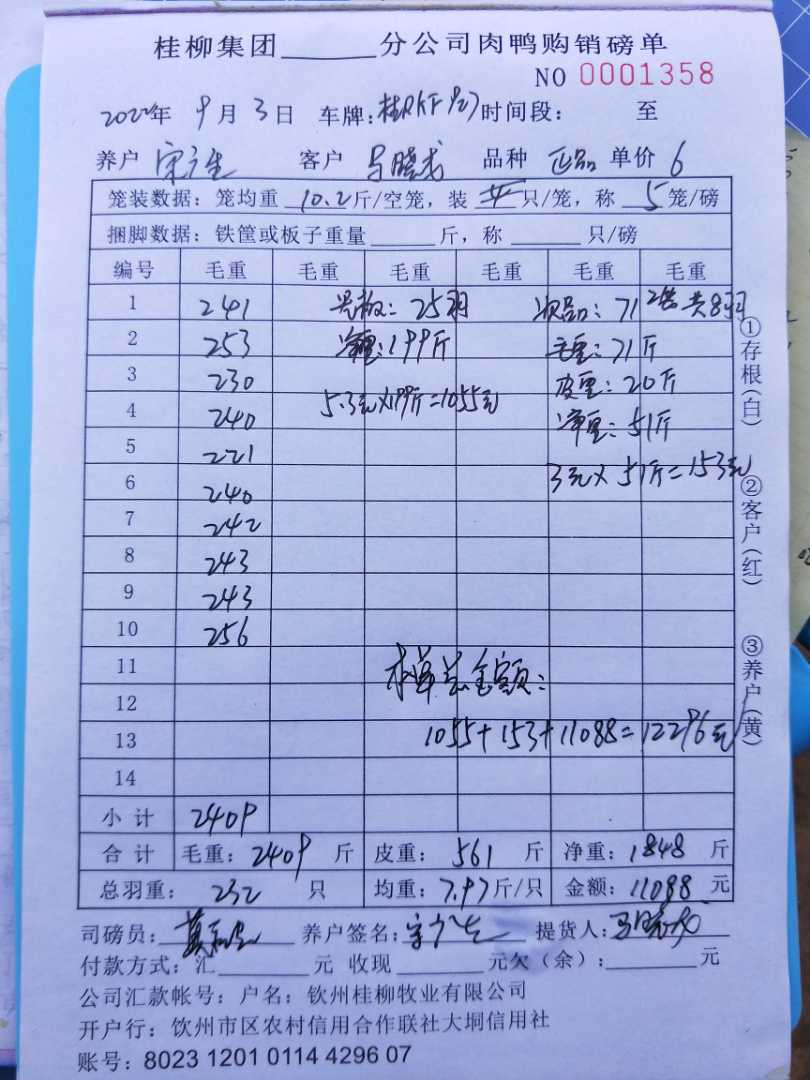 桂柳集团______分公司肉鸭购销磅单
NO 0001358
2022年 9月 3日 车牌: 时间段: 至
养户 客户 马晓龙 品种 正品 单价 6
笼装数据: 笼均重 10.2 斤/空笼, 装 只/笼, 称 5 笼/磅
捆脚数据: 铁筐或板子重量______斤, 称______只/磅
编号 毛重 毛重 毛重 毛重 毛重 毛重
1 241 光板: 25羽 次品: 71 共8羽
2 253 净重: 199斤 毛重: 71斤
3 230 皮重: 20斤
4 240 5.3元×199斤=1055元 净重: 51斤
5 221
6 240 3元×51斤=153元
7 242
8 243
9 243
10 256
11 本单总金额:
12
13 1055+153+11088=12296元
14
小计 2409
合计 毛重: 2409 斤 皮重: 561 斤 净重: 1848 斤
总羽重: 232 只 均重: 7.97斤/只 金额: 11088 元
司磅员: 养户签名: 提货人: 马晓龙
付款方式: 汇______元 收现______元欠(余):______元
公司汇款帐号: 户名: 钦州桂柳牧业有限公司
开户行: 钦州市区农村信用合作联社大垌信用社
账号: 8023 1201 0114 4296 07
①存根(白)
②客户(红)
③养户(黄)